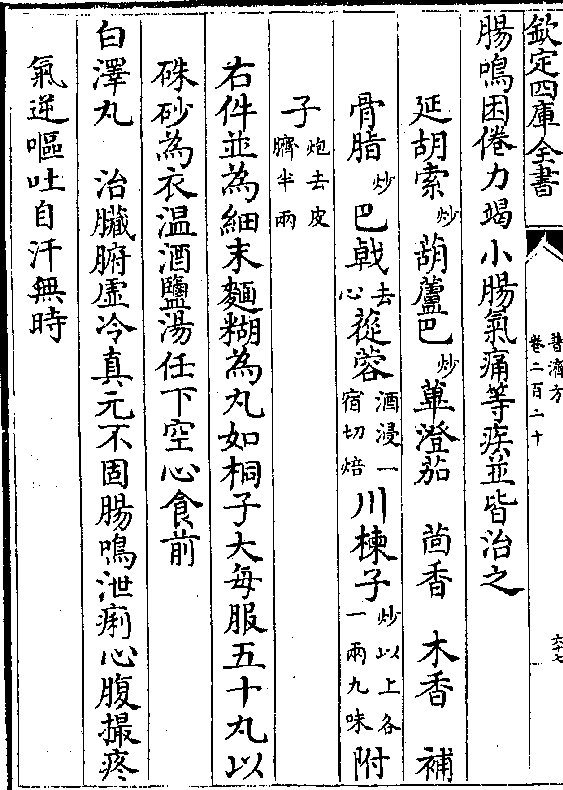 欽定四庫全書
普濟方
卷二百二十
六十七
腸鳴困倦力竭小腸氣痛等疾並皆治之
延胡索炒葫蘆巴炒蓽澄茄 茴香 木香 補
骨脂炒巴戟去心蓯蓉酒浸一宿切焙川楝子炒以上各一兩九味附
子炮去皮臍半兩
右件並為細末麵糊為丸如桐子大每服五十丸以
硃砂為衣温酒鹽湯任下空心食前
白澤丸 治臟腑虛冷真元不固腸鳴泄痢心腹撮疼
氣逆嘔吐自汗無時